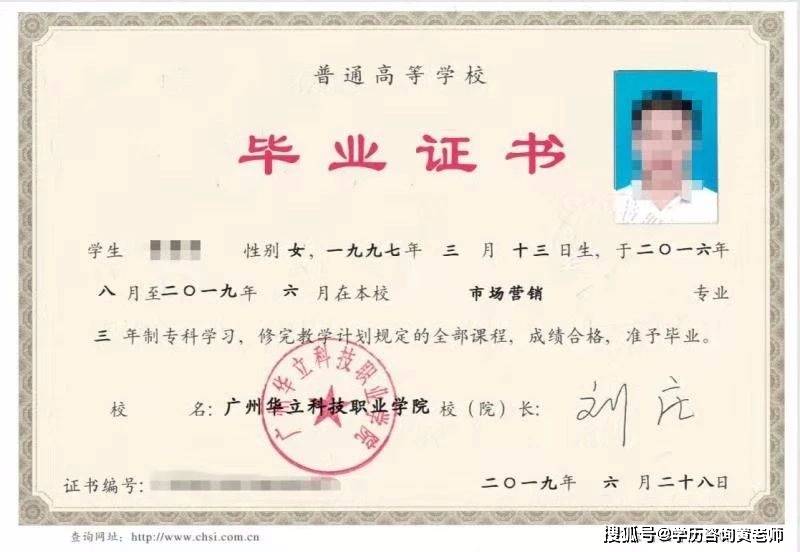 普通高等学校
毕业证书
学生 性别 女，一九九七年 三 月 十三 日生，于二〇一六年
八 月至二〇一九年 六 月在本校 市场营销 专业
三 年制专科学习，修完教学计划规定的全部课程，成绩合格，准予毕业。
广州华立科技职业学院
校 名：广州华立科技职业学院 校（院）长： 刘庄
证书编号：
二〇一九年 六 月二十八日
查询网址：http://www.chsi.com.cn
搜狐号@学历咨询黄老师